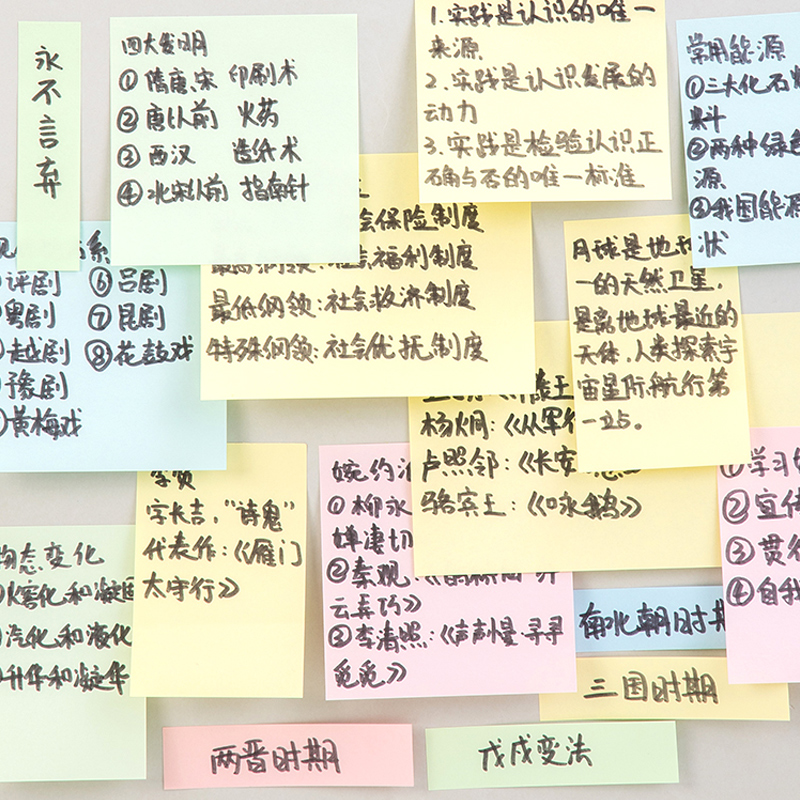 永不言弃
四大发明
①隋唐宋 印刷术
②唐以前 火药
③西汉 造纸术
④北宋以前 指南针
1.实践是认识的唯一
来源
2.实践是认识发展的
动力
3.实践是检验认识正
确与否的唯一标准
常用能源
①三大化石燃
料
②两种绿色
源
③我国能源
状
会保险制度
最高纲领:社会福利制度
最低纲领:社会救济制度
特殊纲领:社会优抚制度
评剧 ⑥吕剧
粤剧 ⑦昆剧
越剧 ⑧花鼓戏
豫剧
黄梅戏
月球是地球
一的天然卫星,
是离地球最近的
天体,人类探索宇
宙星际航行第
一站。
王
杨炯:《从军行
卢照邻:《长安
骆宾王:《咏鹅》
李贺
字长吉,“诗鬼”
代表作:《雁门
太守行》
婉约派
①柳永
蝉凄切
②秦观:《鹊桥仙·纤
云弄巧》
③李清照:《声声慢·寻寻
觅觅》
①学习
②宣传
③贯彻
④自我
物态变化
熔化和凝固
汽化和液化
升华和凝华
南北朝时期
三国时期
两晋时期
戊戌变法